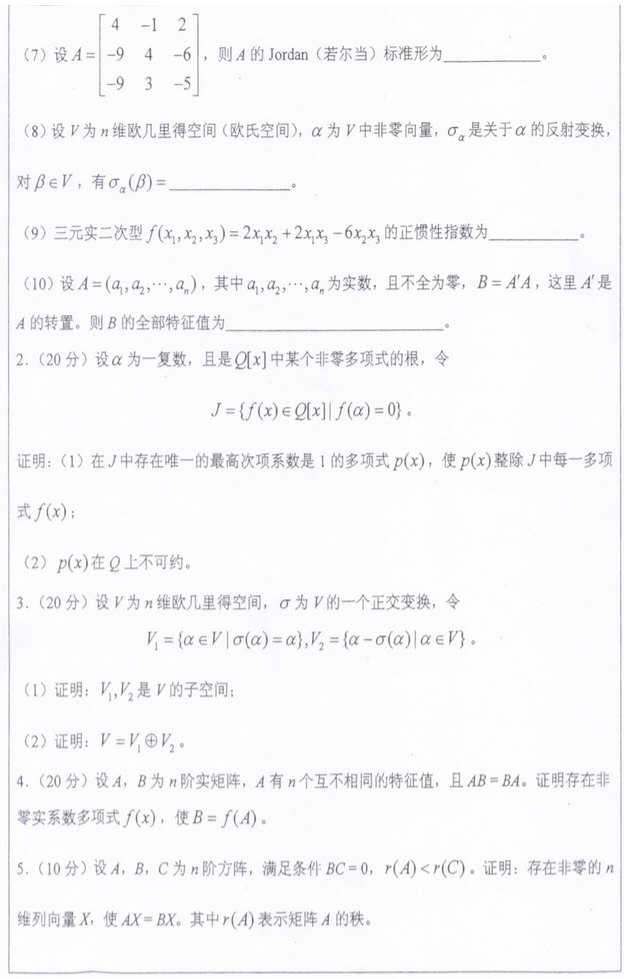 （7）设 A = [4 −1 2; −9 4 −6; −9 3 −5]，则 A 的 Jordan（若尔当）标准形为____________。
（8）设 V 为 n 维欧几里得空间（欧氏空间），α 为 V 中非零向量，σ_α 是关于 α 的反射变换，
对 β∈V，有 σ_α(β) = ______________。
（9）三元实二次型 f(x₁,x₂,x₃) = 2x₁x₂ + 2x₁x₃ − 6x₂x₃ 的正惯性指数为___________。
（10）设 A = (a₁,a₂,⋯,aₙ)，其中 a₁,a₂,⋯,aₙ 为实数，且不全为零，B = A′A，这里 A′ 是
A 的转置。则 B 的全部特征值为__________________________。
2.（20 分）设 α 为一复数，且是 Q[x] 中某个非零多项式的根，令
J = {f(x)∈Q[x] | f(α) = 0}。
证明：（1）在 J 中存在唯一的最高次项系数是 1 的多项式 p(x)，使 p(x) 整除 J 中每一多项
式 f(x)；
（2） p(x) 在 Q 上不可约。
3.（20 分）设 V 为 n 维欧几里得空间，σ 为 V 的一个正交变换，令
V₁ = {α∈V | σ(α) = α}, V₂ = {α − σ(α) | α∈V}。
（1）证明：V₁,V₂ 是 V 的子空间；
（2）证明：V = V₁⊕V₂。
4.（20 分）设 A，B 为 n 阶实矩阵，A 有 n 个互不相同的特征值，且 AB = BA。证明存在非
零实系数多项式 f(x)，使 B = f(A)。
5.（10 分）设 A，B，C 为 n 阶方阵，满足条件 BC = 0，r(A) < r(C)。证明：存在非零的 n
维列向量 X，使 AX = BX。其中 r(A) 表示矩阵 A 的秩。